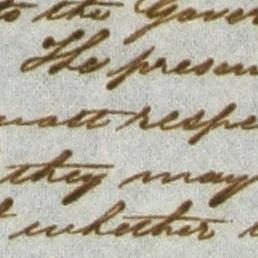 to the Gover
The presen
matt respe
they may
whether